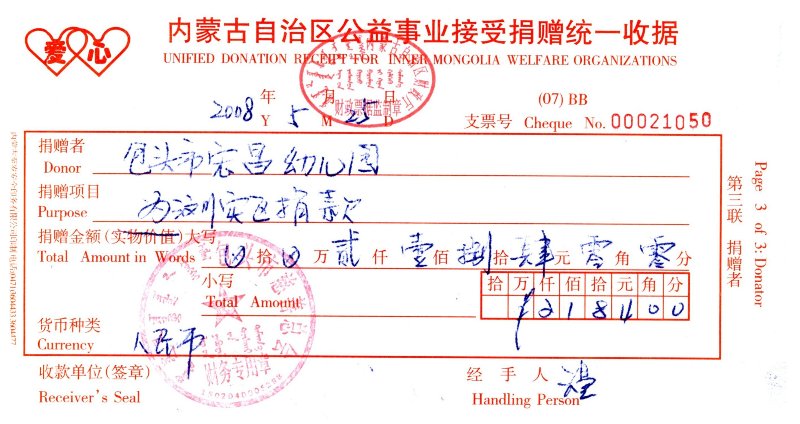 爱心
内蒙古自治区公益事业接受捐赠统一收据
UNIFIED DONATION RECEIPT FOR INNER MONGOLIA WELFARE ORGANIZATIONS
内蒙古自治区财政厅
财政票据监制章
2008 年 5 月 25 日
Y M D
(07) BB
支票号 Cheque No. 00021050
捐赠者 包头市宏昌幼儿园
Donor
捐赠项目 为汶川灾区捐款
Purpose
捐赠金额(实物价值)大写
Total Amount in Words 拾 万 贰 仟 壹 佰 捌 拾 肆 元 零 角 零 分
小写
Total Amount
拾 万 仟 佰 拾 元 角 分
¥ 2 1 8 4 0 0
货币种类
Currency 人民币
财务专用章
收款单位(签章)
Receiver's Seal
经手人
Handling Person
第三联 捐赠者
Page 3 of 3: Donator